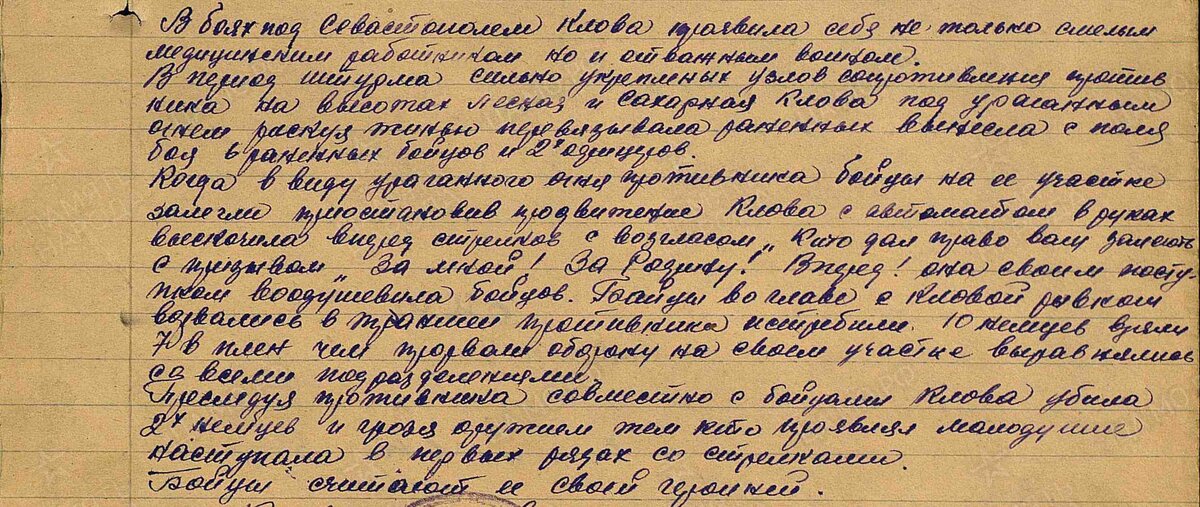 В боях под Севастополем Клова проявила себя не только смелым
медицинским работником но и отважным воином.
В период штурма сильно укрепленных узлов сопротивления против
ника на высотах Лесная и Сахарная Клова под ураганным
огнем рискуя жизнью перевязывала раненных вынесла с поля
боя 6 раненных бойцов и 2х офицеров.
Когда в виду ураганного огня противника бойцы на ее участке
залегли приостановив продвижение Клова с автоматом в руках
выскочила вперед стрелков с возгласом „Кто дал право вам залегать
с призывом „За мной! За Родину! Вперед! она своим посту-
пком воодушевила бойцов. Бойцы во главе с Кловой рывком
ворвались в траншеи противника истребили 10 немцев взяли
7 в плен чем прорвали оборону на своем участке выравнялись
со всеми подразделениями.
Преследуя противника совместно с бойцами Клова убила
2х немцев и грозя оружием тем кто проявлял малодушие
наступала в первых рядах со стрелками.
Бойцы считают ее своей героиней.